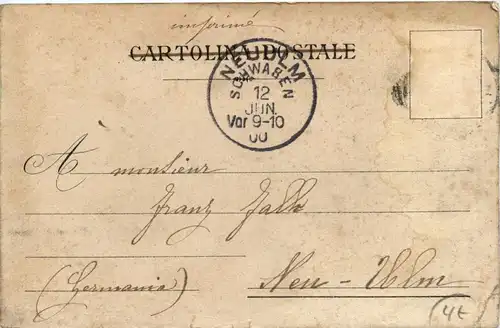 imprimé
CARTOLINA POSTALE
NEU-ULM
SCHWABEN
12
JUN.
Vor 9-10
00
A monsieur
Franz Falk
(Germania) Neu-Ulm
4€